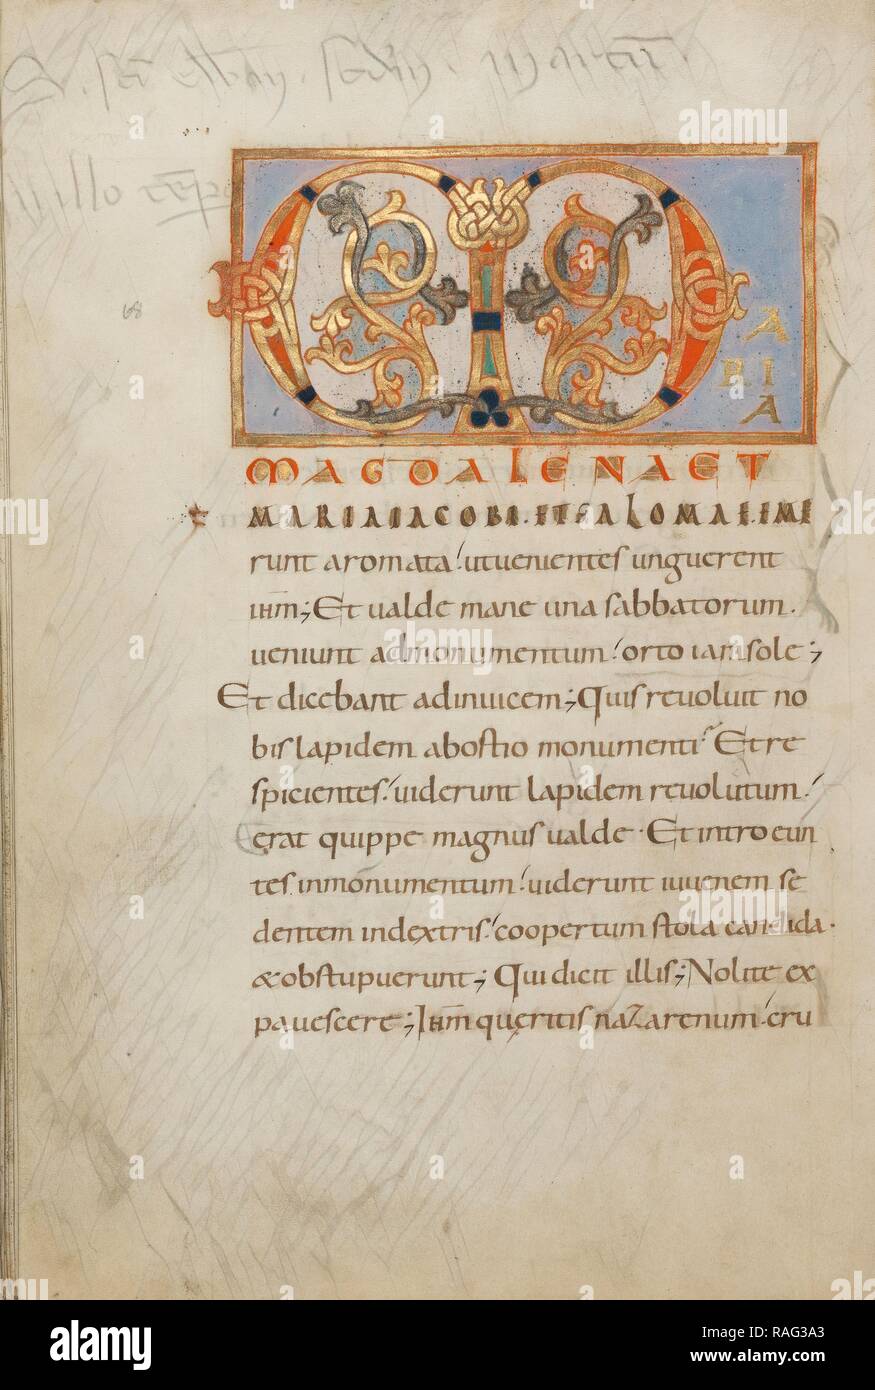 M
A
RI
A
MAGDALENAET
MARIAIACOBI·ETSALOMAE·EME
runt aromata! utuenientes unguerent
ihm̄; Et ualde mane una sabbatorum·
ueniunt admonumentum! orto iamsole;
Et dicebant adinuicem; Quis reuoluit no
bis lapidem abostio monumenti? Et re
spicientes! uiderunt lapidem reuolutum!
erat quippe magnus ualde· Et introeun
tes inmonumentum! uiderunt iuuenem se
dentem indextris! coopertum stola candida·
&obstupuerunt; Qui dicit illis; Nolite ex
pauescere; Ihm̄ queritis nazarenum! cru
68
alamy
a
alamy
Image ID: RAG3A3
www.alamy.com